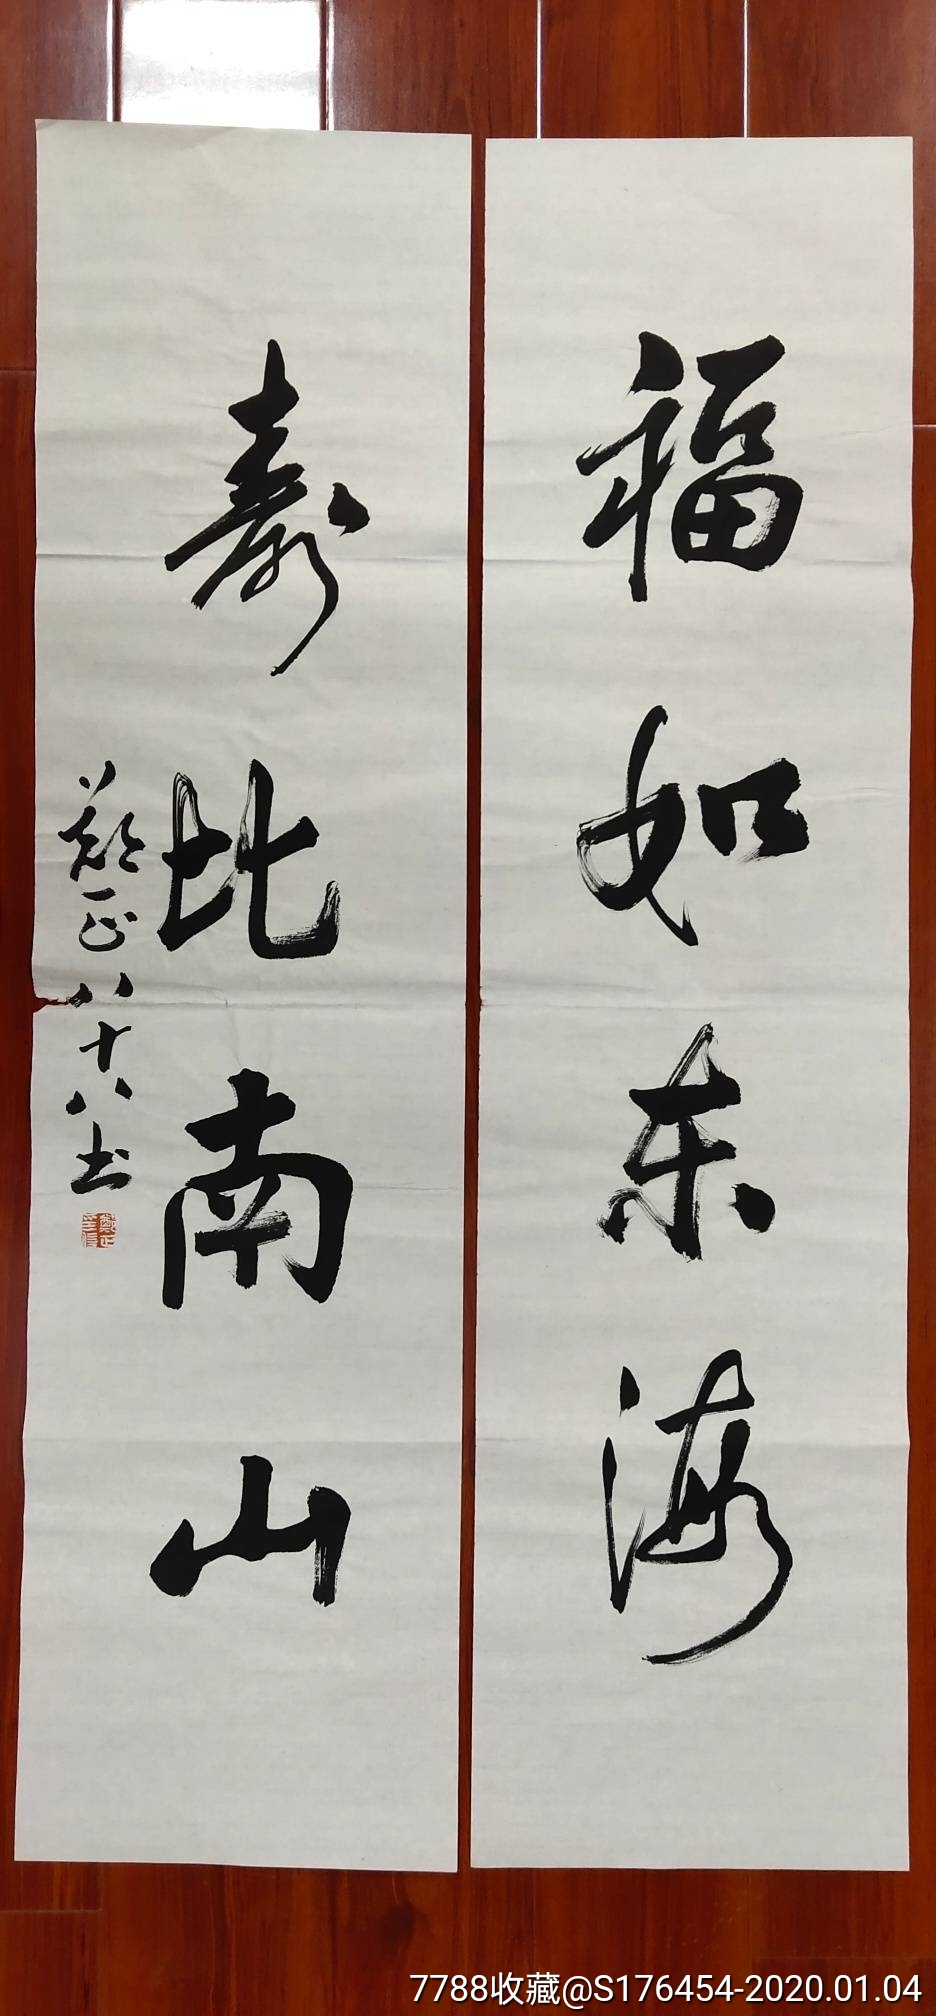 福如东海
寿比南山
郑正八十八书
7788收藏@S176454-2020.01.04